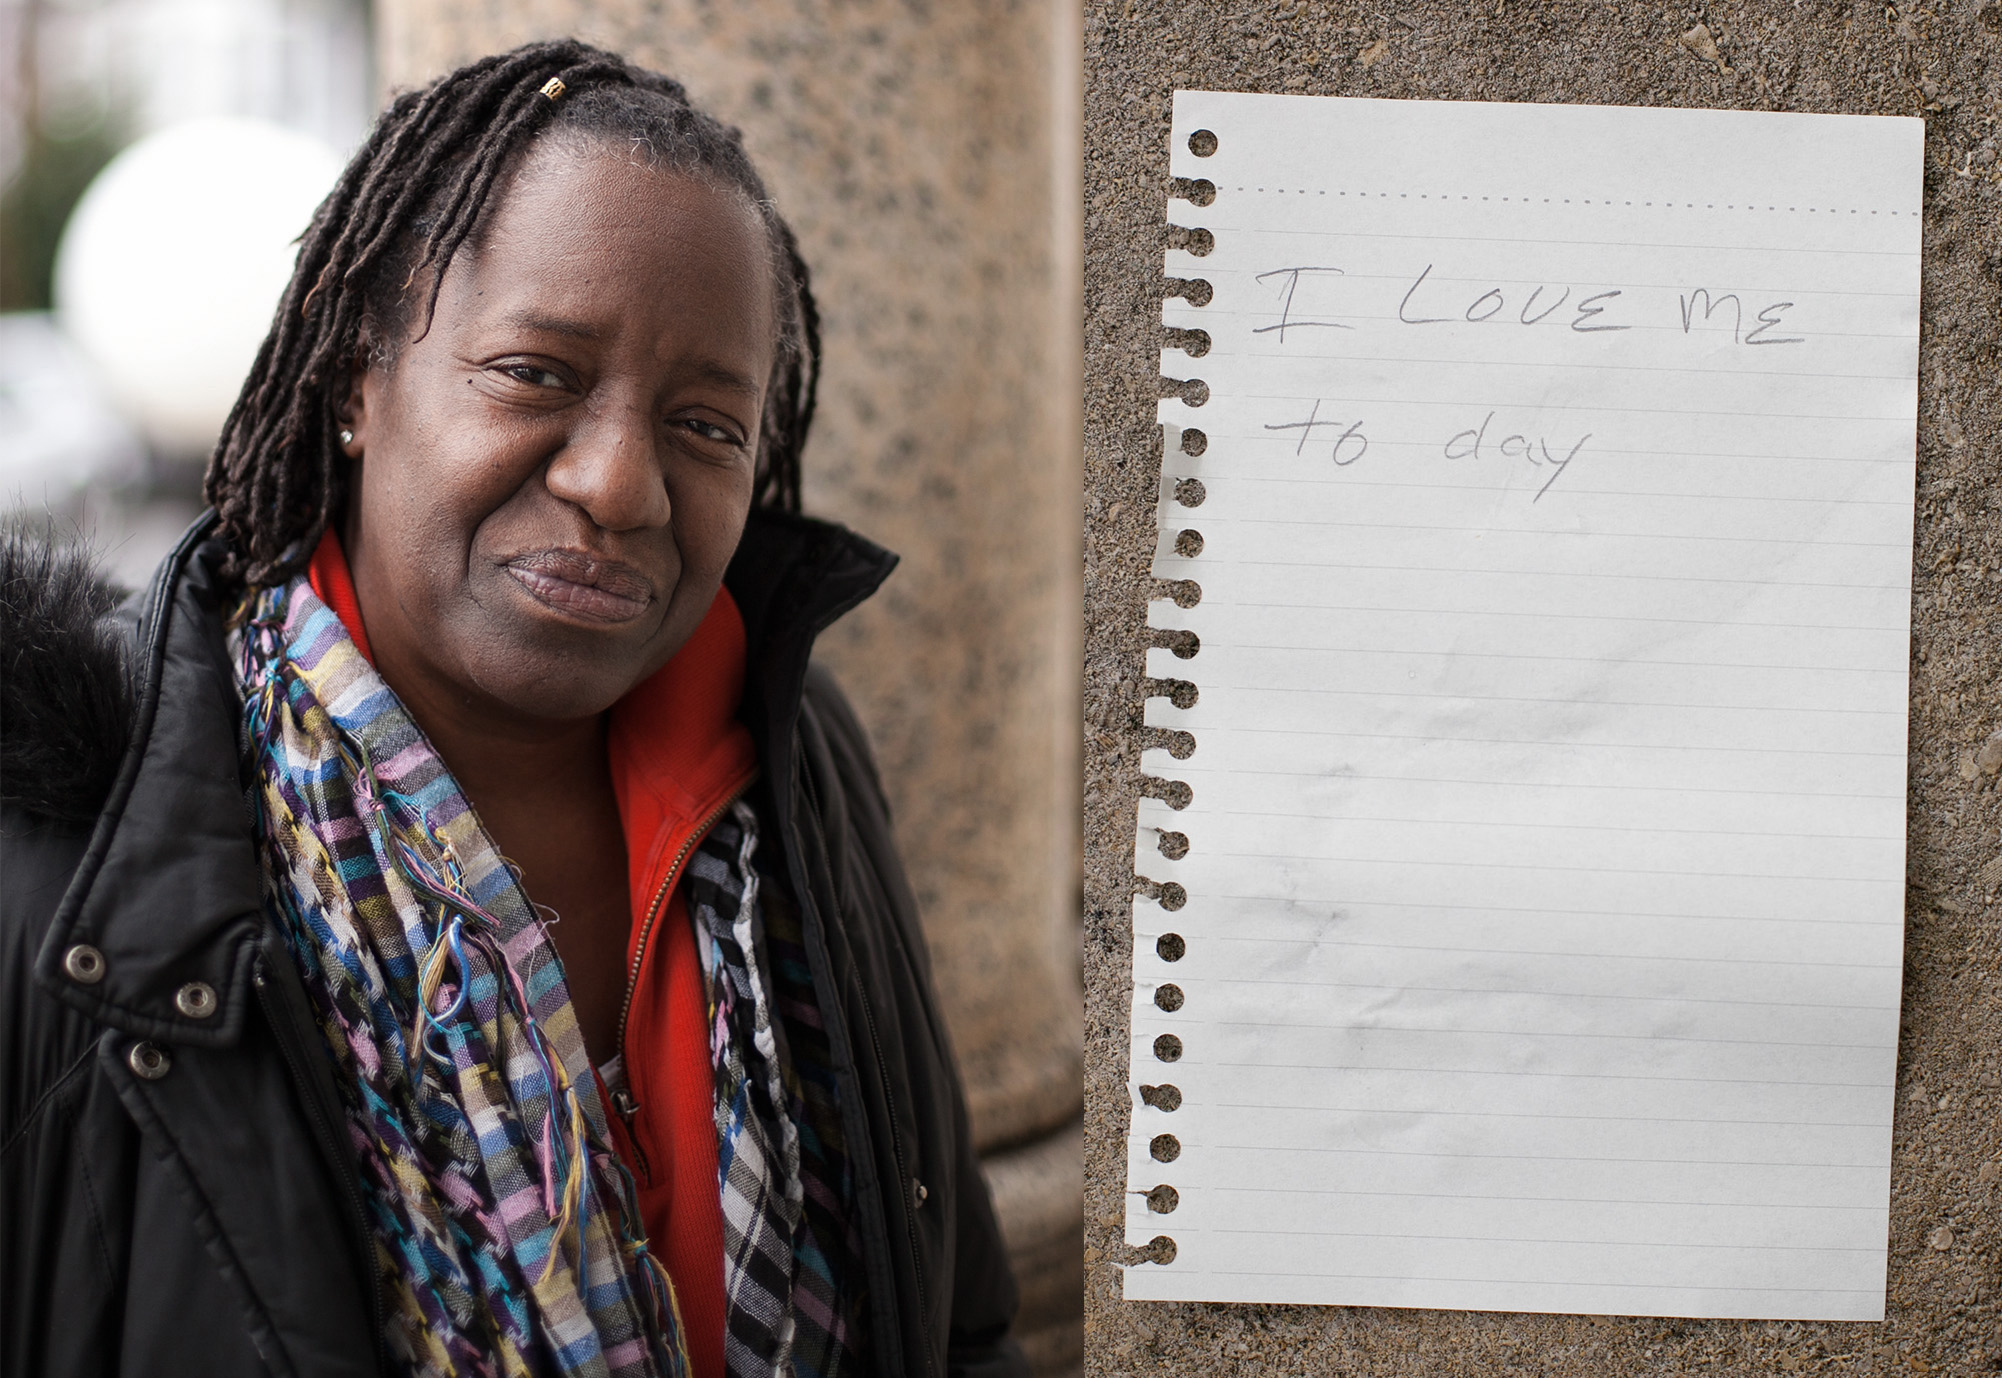 I LOVE ME
to day